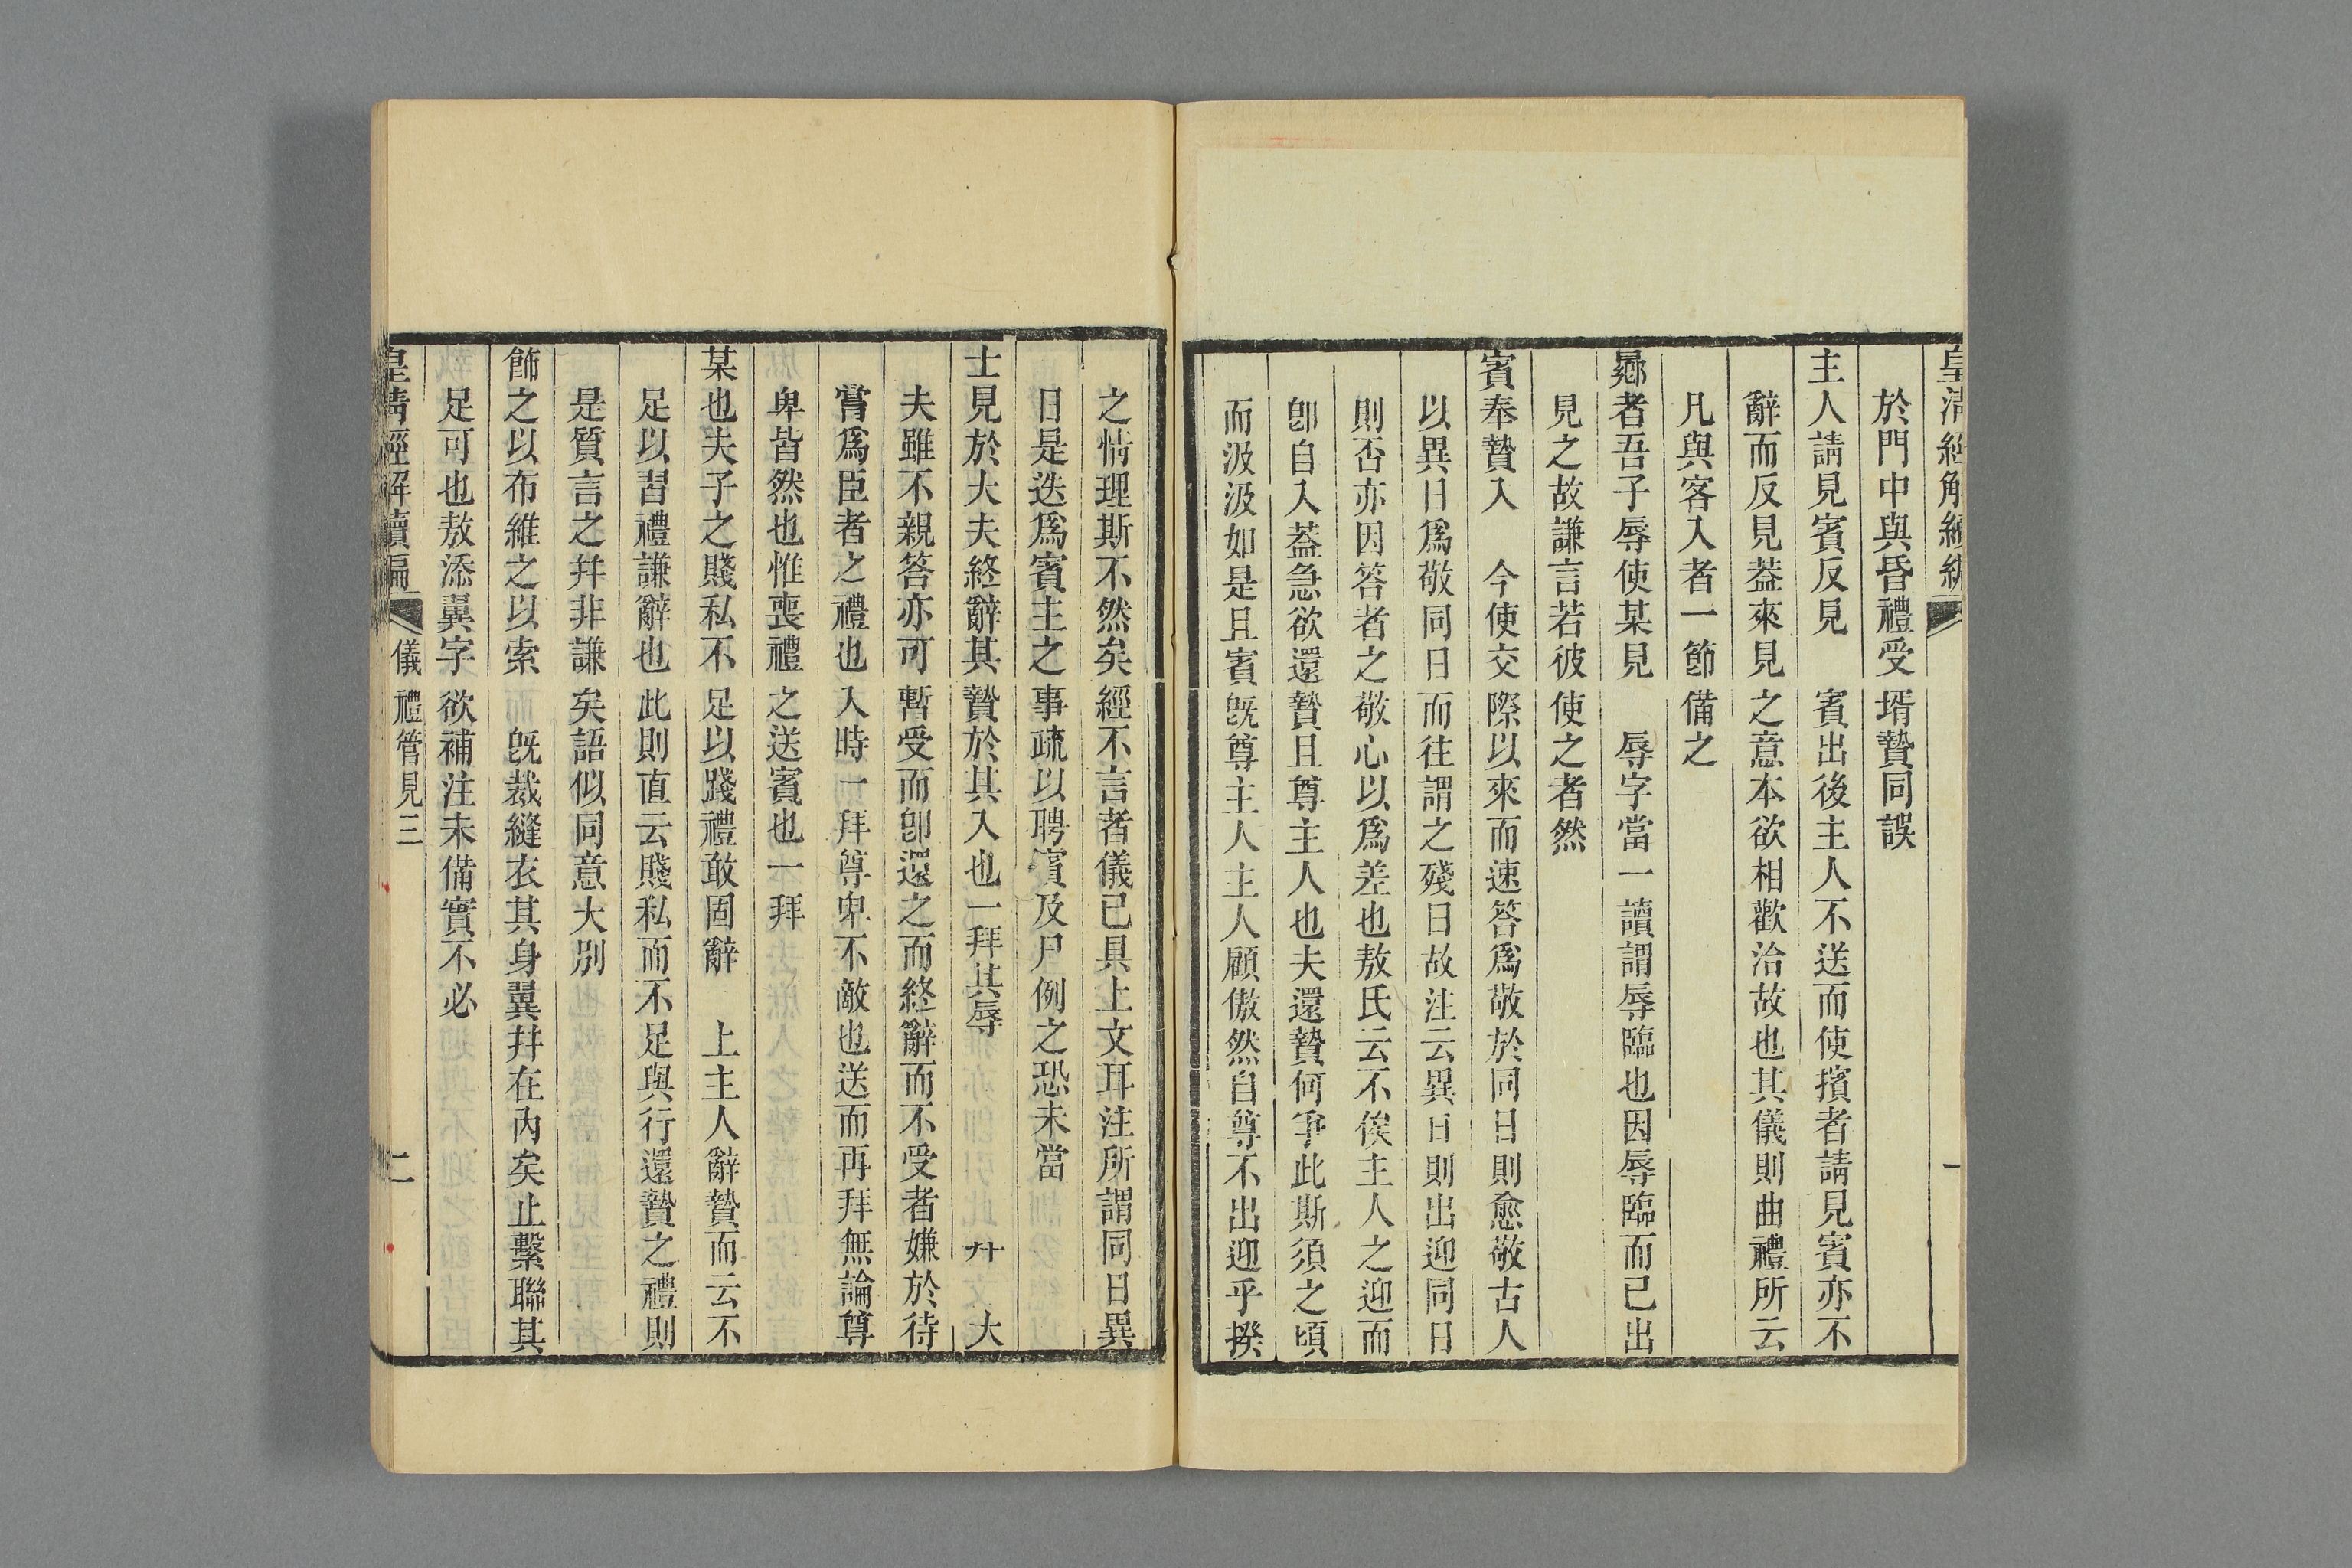 皇清經解續編 一
於門中與昏禮受壻贄同誤
主人請見賓反見 賓出後主人不送而使擯者請見賓亦不
辭而反見葢來見之意本欲相歡洽故也其儀則曲禮所云
凡與客入者一節備之
曏者吾子辱使某見 辱字當一讀謂辱臨也因辱臨而已出
見之故謙言若彼使之者然
賓奉贄入 今使交際以來而速答爲敬於同日則愈敬古人
以異日爲敬同日而往謂之殘日故注云異日則出迎同日
則否亦因答者之敬心以爲差也敖氏云不俟主人之迎而
卽自入葢急欲還贄且尊主人也夫還贄何爭此斯須之頃
而汲汲如是且賓旣尊主人主人顧傲然自尊不出迎乎揆
之情理斯不然矣經不言者儀已具上文耳注所謂同日異
日是迭爲賓主之事疏以聘賓及尸例之恐未當
士見於大夫終辭其贄於其入也一拜其辱 大
夫雖不親答亦可暫受而卽還之而終辭而不受者嫌於待
嘗爲臣者之禮也入時一拜尊卑不敵也送而再拜無論尊
卑皆然也惟喪禮之送賓也一拜
某也夫子之賤私不足以踐禮敢固辭 上主人辭贄而云不
足以習禮謙辭也此則直云賤私而不足與行還贄之禮則
是質言之幷非謙矣語似同意大別
飾之以布維之以索 旣裁縫衣其身翼幷在內矣止繫聯其
足可也敖添翼字欲補注未備實不必
皇清經解續編 儀禮管見三 二